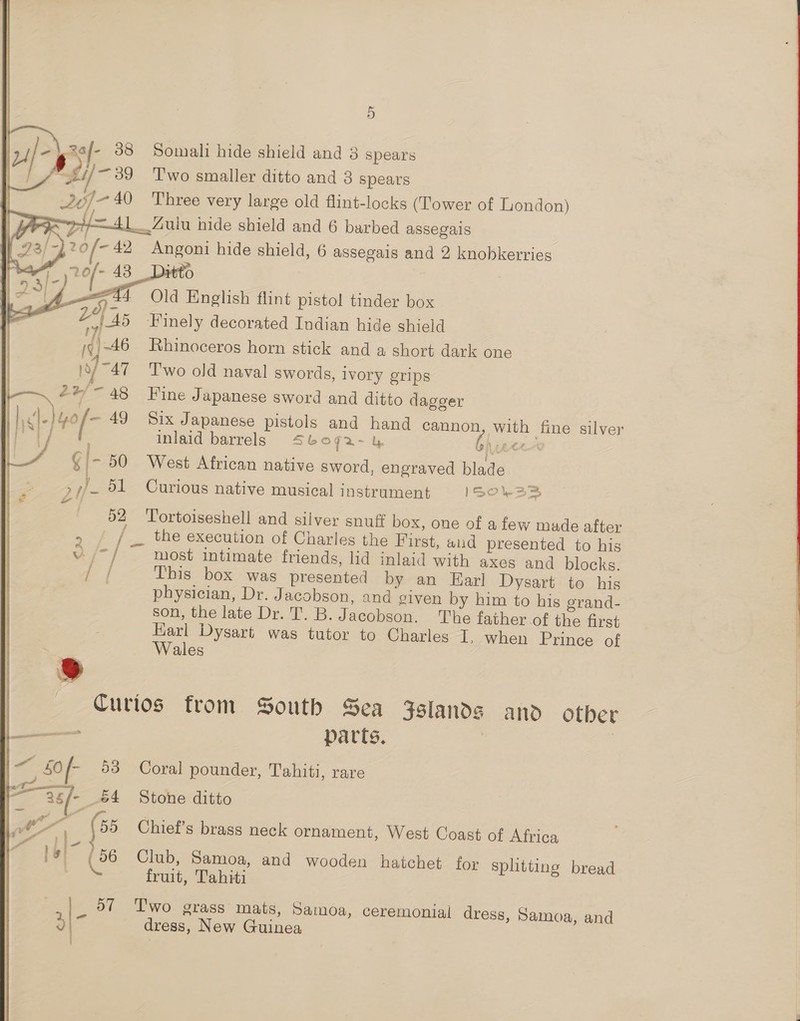 5
30/- 38 Somali hide shield and 3 spears
39 Two smaller ditto and 3 spears
40 Three very large old flint-locks (Tower of London)
41 Zulu hide shield and 6 barbed assegais
20/- 42 Angoni hide shield, 6 assegais and 2 knobkerries
20/- 43 Ditto
44 Old English flint pistol tinder box
45 Finely decorated Indian hide shield
46 Rhinoceros horn stick and a short dark one
47 Two old naval swords, ivory grips
48 Fine Japanese sword and ditto dagger
40/- 49 Six Japanese pistols and hand cannon, with fine silver
inlaid barrels
50 West African native sword, engraved blade
51 Curious native musical instrument
52 Tortoiseshell and silver snuff box, one of a few made after
the execution of Charles the First, and presented to his
most intimate friends, lid inlaid with axes and blocks.
This box was presented by an Earl Dysart to his
physician, Dr. Jacobson, and given by him to his grand-
son, the late Dr. T. B. Jacobson. The father of the first
Earl Dysart was tutor to Charles I. when Prince of
Wales
Curios from South Sea Islands and other
parts.
53 Coral pounder, Tahiti, rare
35/- 54 Stone ditto
55 Chief's brass neck ornament, West Coast of Africa
56 Club, Samoa, and wooden hatchet for splitting bread
fruit, Tahiti
57 Two grass mats, Samoa, ceremonial dress, Samoa, and
dress, New Guinea